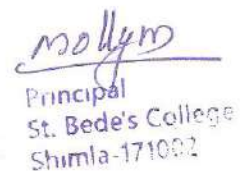 Mollym
Principal
St. Bede's College
Shimla-171002